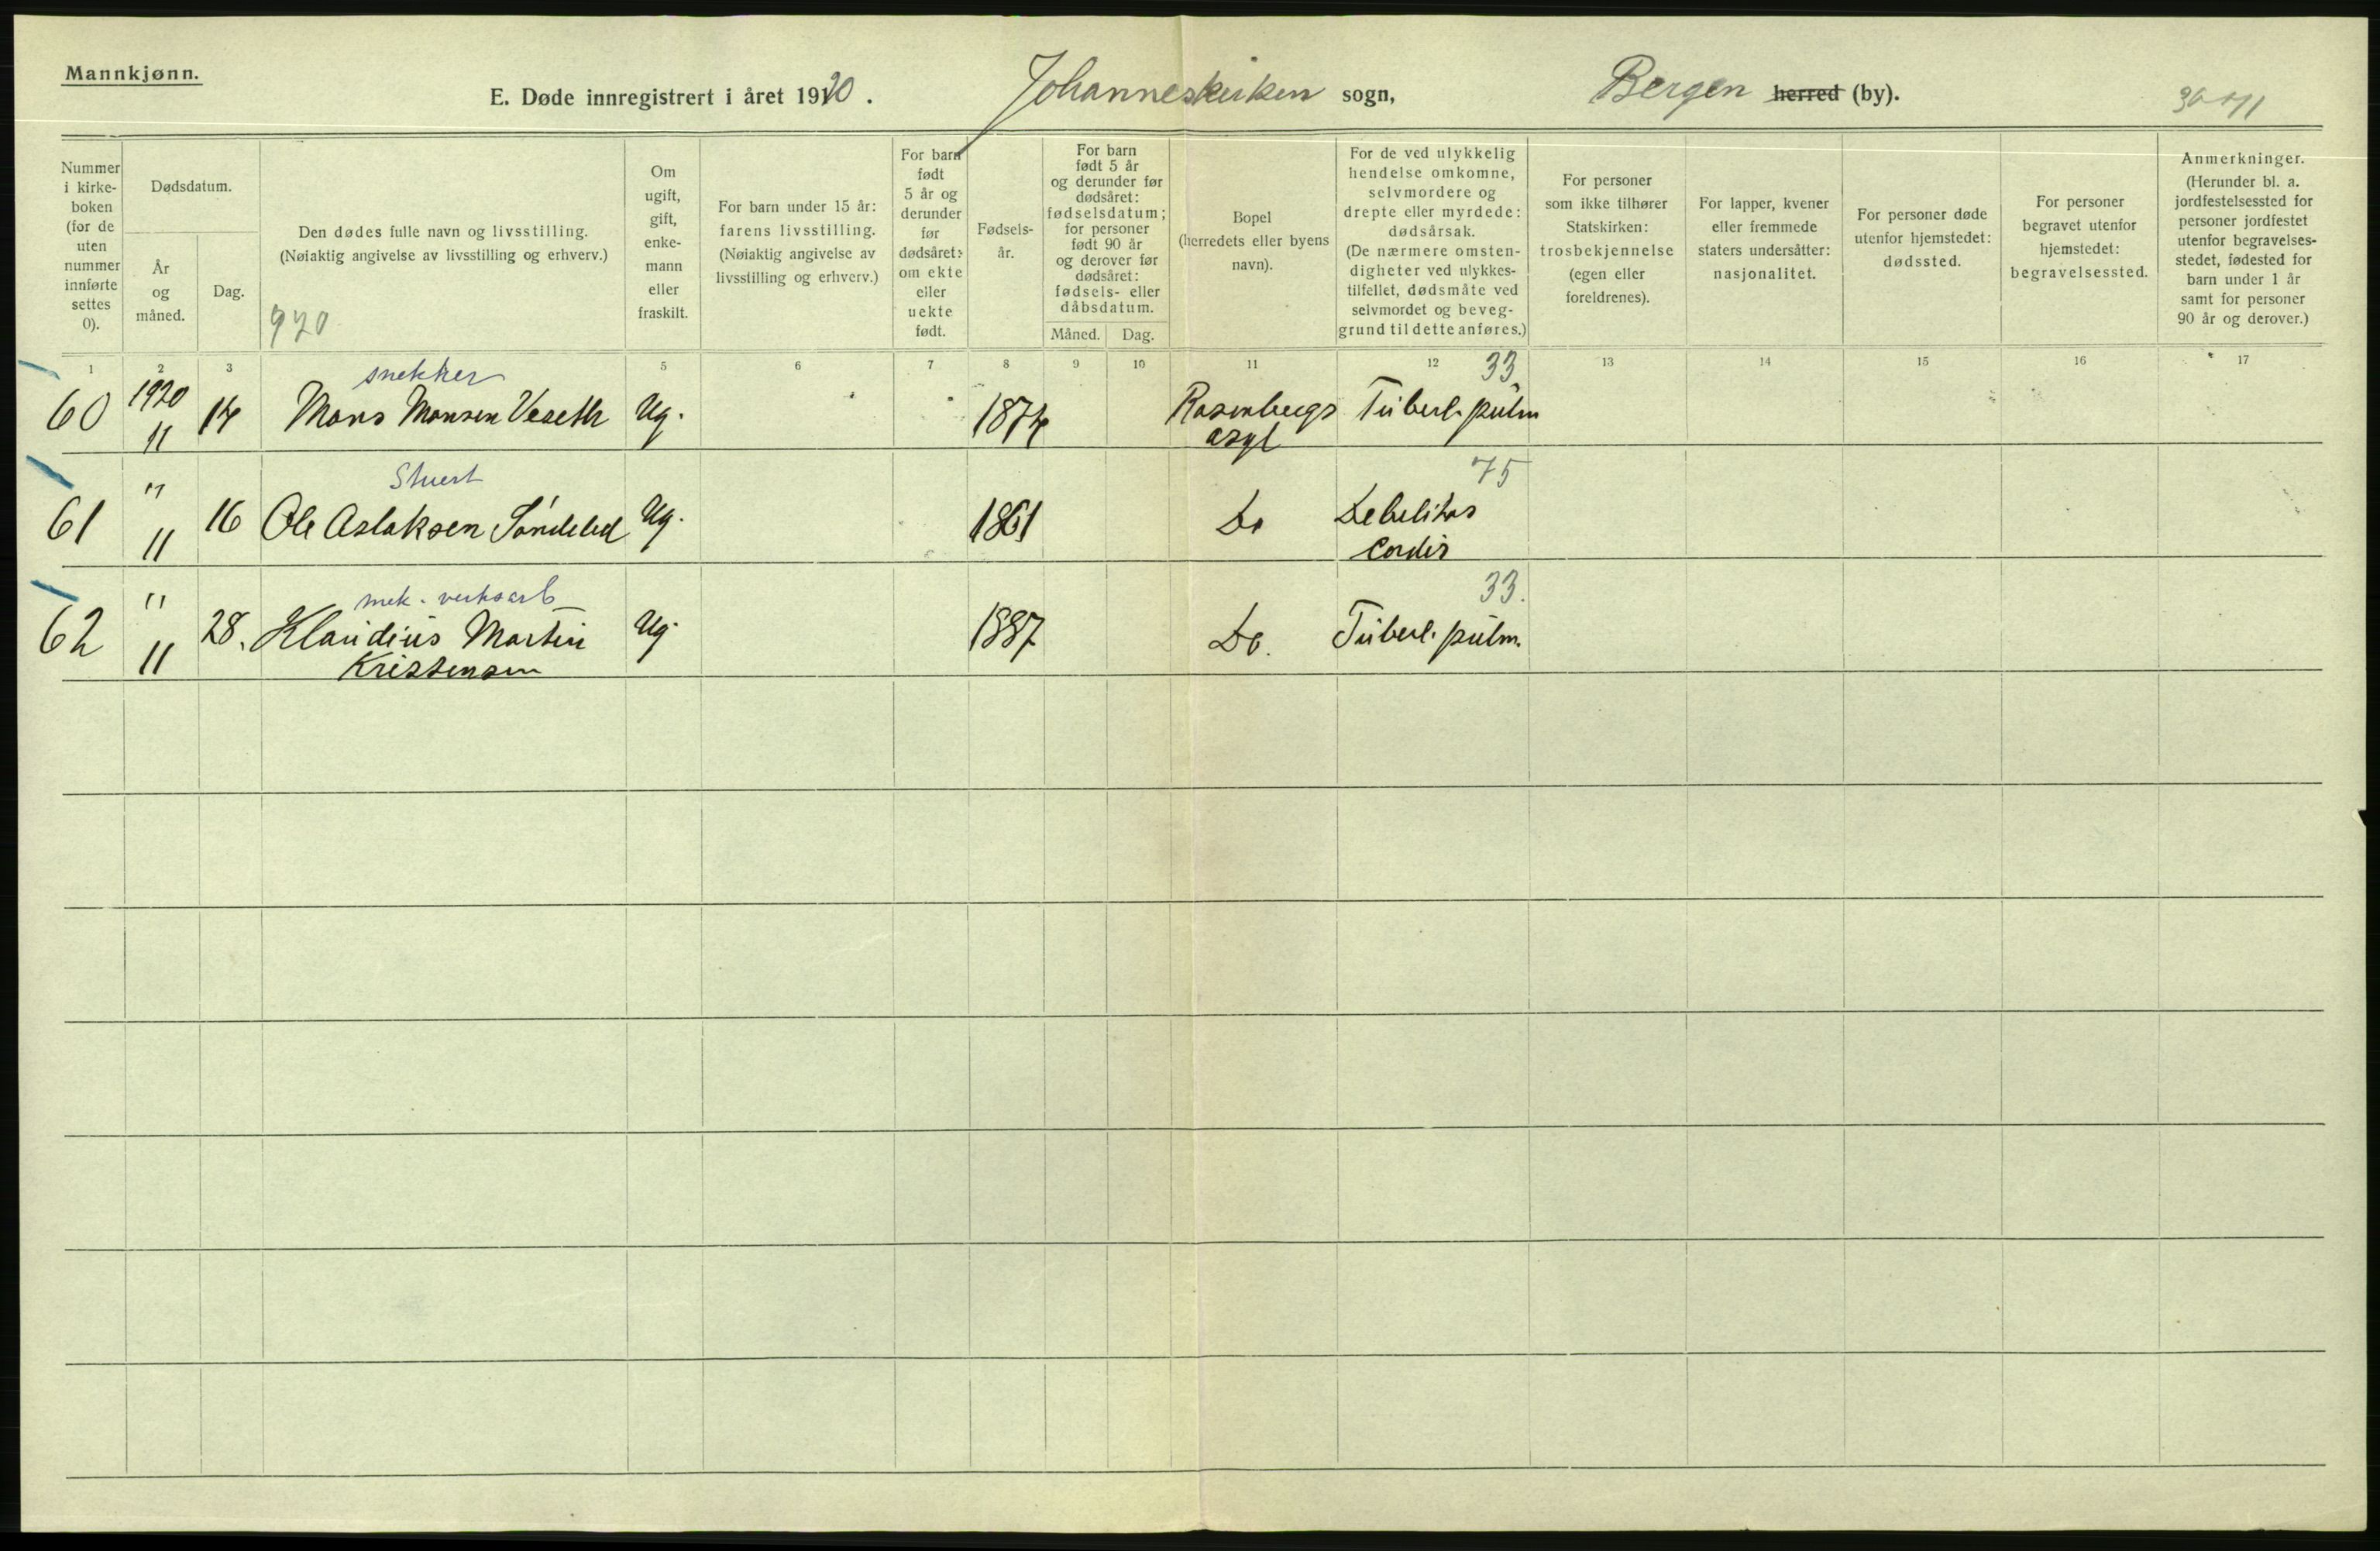 Mannkjønn.
E. Døde innregistrert i året 1920. Johanneskirken sogn, Bergen herred (by).
Nummer i kirke- boken (for de uten nummer innførte settes 0).
Dødsdatum.
År og måned.
Dag.
Den dødes fulle navn og livsstilling.
(Nøiaktig angivelse av livsstilling og erhverv.)
920
Om ugift, gift, enke- mann eller fraskilt.
For barn under 15 år: farens livsstilling.
(Nøiaktig angivelse av livsstilling og erhverv.)
For barn født 5 år og derunder før dødsåret: om ekte eller uekte født.
Fødsels- år.
For barn født 5 år og derunder før dødsåret: fødselsdatum; for personer født 90 år og derover før dødsåret: fødsels- eller dåbsdatum.
Måned.
Dag.
Bopel (herredets eller byens navn).
For de ved ulykkelig hendelse omkomne, selvmordere og drepte eller myrdede: dødsårsak.
(De nærmere omsten- digheter ved ulykkes- tilfellet, dødsmåte ved selvmordet og beveg- grund til dette anføres.)
For personer som ikke tilhører Statskirken: trosbekjennelse (egen eller foreldrenes).
For lapper, kvener eller fremmede staters undersåtter: nasjonalitet.
For personer døde utenfor hjemstedet: dødssted.
For personer begravet utenfor hjemstedet: begravelsessted.
Anmerkninger.
(Herunder bl. a. jordfestelsessted for personer jordfestet utenfor begravelses- stedet, fødested for barn under 1 år samt for personer 90 år og derover.)
1 2 3 5 6 7 8 9 10 11 12 13 14 15 16 17
snekker 33
60 1920 11 14 Mons Monsen Veseth Ug. 1874 Rosenbergs asyl Tuberk. pulm
Stuert 75
61 " 11 16 Ole Aslaksen Søndeled Ug. 1861 Do Debelitas Cordis
mek. verksarb 33.
62 " 11 28. Klaudius Martin Kristensen Ug. 1887 Do. Tuberk. pulm.